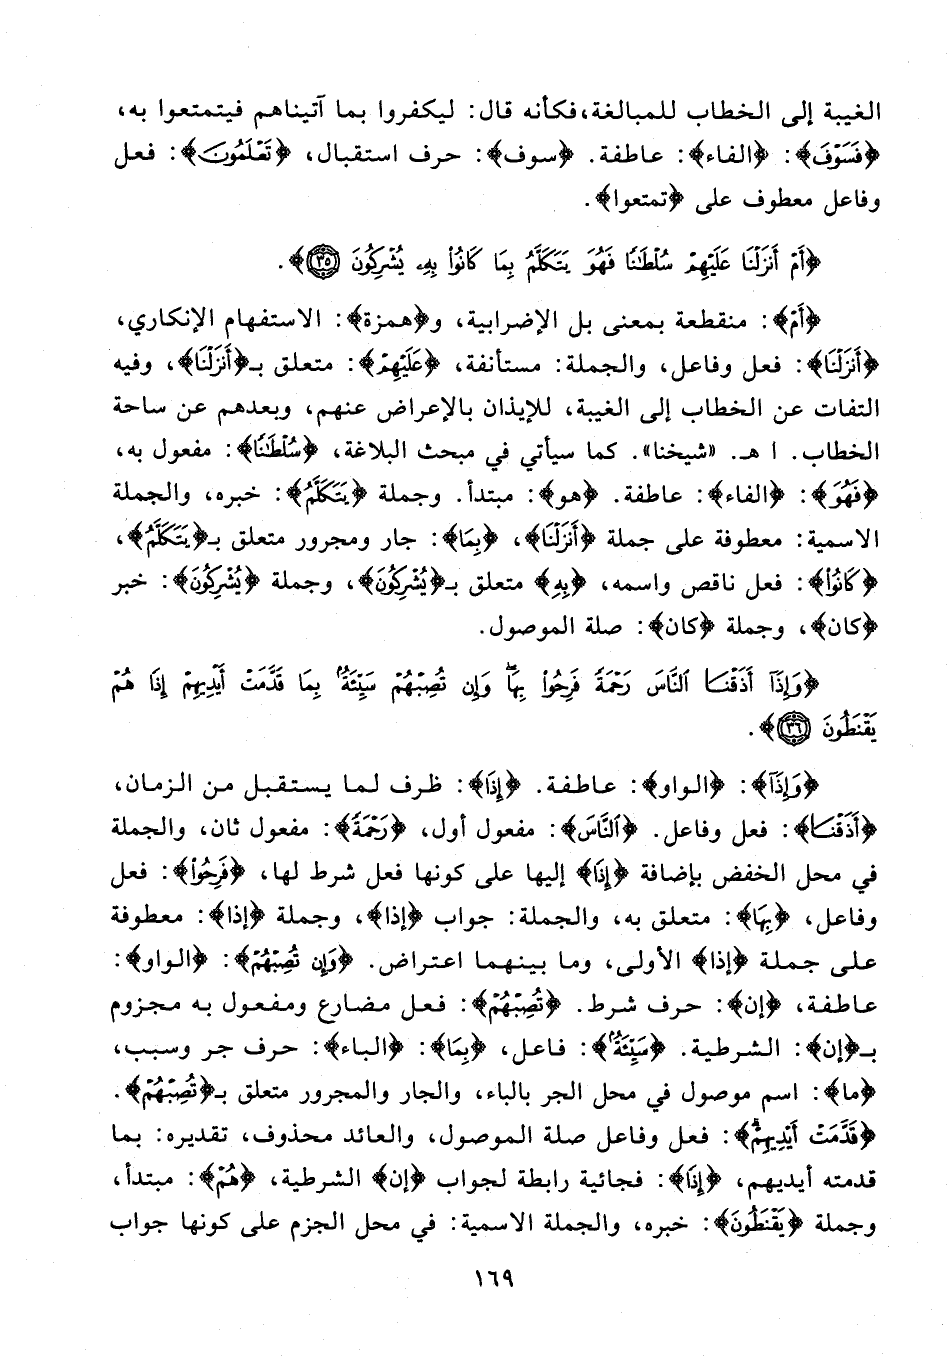 الغيبة إلى الخطاب للمبالغة، فكأنه قال: ليكفروا بما آتيناهم فيتمتعوا به،
﴿فَسَوْفَ﴾: ﴿الفاء﴾: عاطفة. ﴿سوف﴾: حرف استقبال، ﴿تَعْلَمُونَ﴾: فعل
وفاعل معطوف على ﴿تمتعوا﴾.
﴿أَمْ أَنزَلْنَا عَلَيْهِمْ سُلْطَٰنًا فَهُوَ يَتَكَلَّمُ بِمَا كَانُوا۟ بِهِۦ يُشْرِكُونَ ٣٥﴾.
﴿أَمْ﴾: منقطعة بمعنى بل الإضرابية، و﴿همزة﴾: الاستفهام الإنكاري،
﴿أَنزَلْنَا﴾: فعل وفاعل، والجملة: مستأنفة، ﴿عَلَيْهِمْ﴾: متعلق بـ﴿أَنزَلْنَا﴾، وفيه
التفات عن الخطاب إلى الغيبة، للإيذان بالإعراض عنهم، وبعدهم عن ساحة
الخطاب. ا هـ. «شيخنا». كما سيأتي في مبحث البلاغة، ﴿سُلْطَٰنًا﴾: مفعول به،
﴿فَهُوَ﴾: ﴿الفاء﴾: عاطفة. ﴿هو﴾: مبتدأ. وجملة ﴿يَتَكَلَّمُ﴾: خبره، والجملة
الاسمية: معطوفة على جملة ﴿أَنزَلْنَا﴾، ﴿بِمَا﴾: جار ومجرور متعلق بـ﴿يَتَكَلَّمُ﴾،
﴿كَانُوا۟﴾: فعل ناقص واسمه، ﴿بِهِ﴾ متعلق بـ﴿يُشْرِكُونَ﴾، وجملة ﴿يُشْرِكُونَ﴾: خبر
﴿كان﴾، وجملة ﴿كان﴾: صلة الموصول.
﴿وَإِذَآ أَذَقْنَا ٱلنَّاسَ رَحْمَةً فَرِحُوا۟ بِهَا ۖ وَإِن تُصِبْهُمْ سَيِّئَةٌۢ بِمَا قَدَّمَتْ أَيْدِيهِمْ إِذَا هُمْ
يَقْنَطُونَ ٣٦﴾.
﴿وَإِذَآ﴾: ﴿الواو﴾: عاطفة. ﴿إِذَا﴾: ظرف لما يستقبل من الزمان،
﴿أَذَقْنَا﴾: فعل وفاعل. ﴿ٱلنَّاسَ﴾: مفعول أول، ﴿رَحْمَةً﴾: مفعول ثان، والجملة
في محل الخفض بإضافة ﴿إِذَا﴾ إليها على كونها فعل شرط لها، ﴿فَرِحُوا۟﴾: فعل
وفاعل، ﴿بِهَا﴾: متعلق به، والجملة: جواب ﴿إذا﴾، وجملة ﴿إذا﴾: معطوفة
على جملة ﴿إذا﴾ الأولى، وما بينهما اعتراض. ﴿وَإِن تُصِبْهُمْ﴾: ﴿الواو﴾:
عاطفة، ﴿إن﴾: حرف شرط. ﴿تُصِبْهُمْ﴾: فعل مضارع ومفعول به مجزوم
بـ﴿إن﴾: الشرطية. ﴿سَيِّئَةٌۢ﴾: فاعل، ﴿بِمَا﴾: ﴿الباء﴾: حرف جر وسبب،
﴿ما﴾: اسم موصول في محل الجر بالباء، والجار والمجرور متعلق بـ﴿تُصِبْهُمْ﴾.
﴿قَدَّمَتْ أَيْدِيهِمْ﴾: فعل وفاعل صلة الموصول، والعائد محذوف، تقديره: بما
قدمته أيديهم، ﴿إِذَا﴾: فجائية رابطة لجواب ﴿إن﴾ الشرطية، ﴿هُمْ﴾: مبتدأ،
وجملة ﴿يَقْنَطُونَ﴾: خبره، والجملة الاسمية: في محل الجزم على كونها جواب
١٦٩